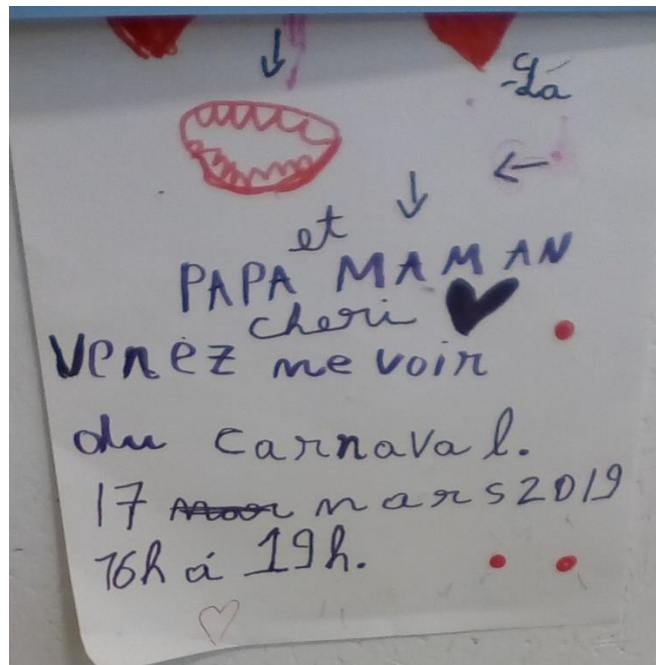 Là
et
PAPA MAMAN
cheri
Venèz me voir
du carnaval.
17 mars 2019
16h á 19h.